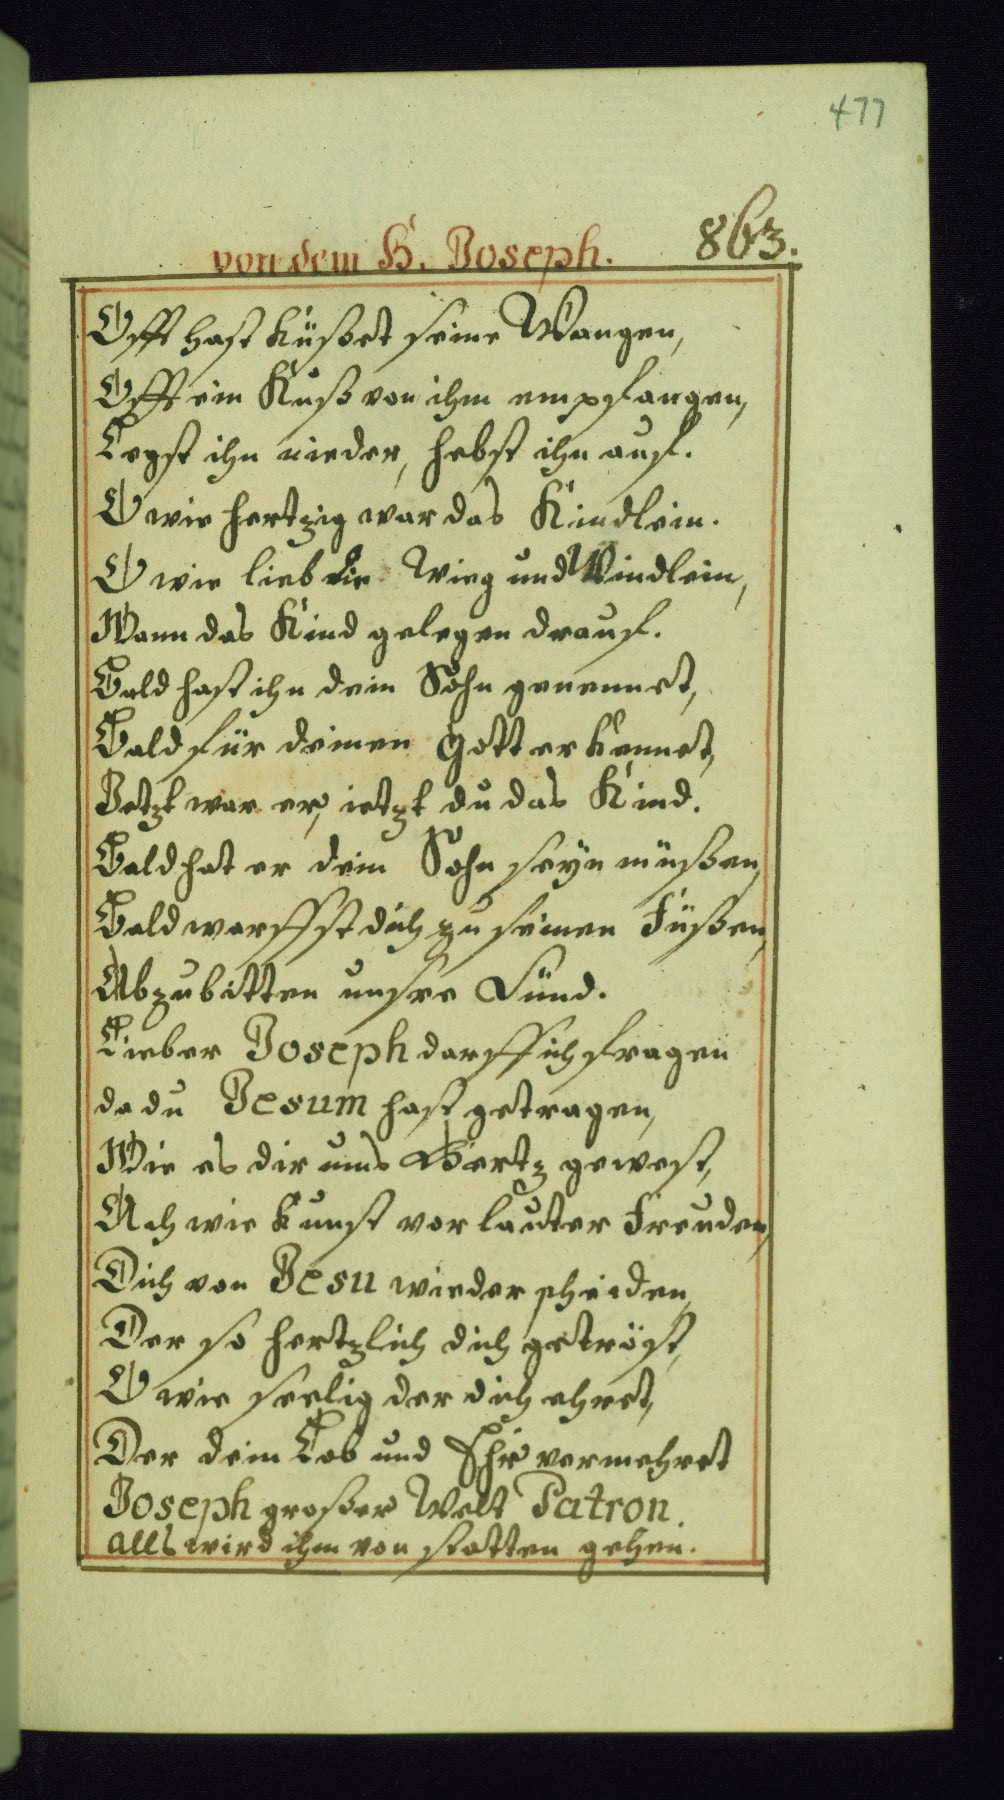 477
von dem H. Joseph. 863.
Offt hast küßet seine Wangen,
Offt ein Kuß von ihm empfangen,
Legst ihn nieder, hebst ihn auf.
O wie hertzig war das Kindlein.
O wie lieb die Wieg und Windlein,
Wann das Kind gelegen drauf.
Bald hast ihn dein Sohn genennet,
Bald für deinen Gott erkennet,
Jetzt war er, ietzt du das Kind.
Bald hat er dein Sohn seyn müßen,
Bald warffst dich zu seinen Füßen,
Abzubitten unsre Sünd.
Lieber Joseph darff ich fragen
da du Jesum hast getragen,
Wie es dir ums Hertz gewest,
Ach wie kunst vor lauter Freuden,
Dich von Jesu wieder scheiden,
Der so hertzlich dich getröst,
O wie seelig der dich ehret,
Der dein Lob und Ehr vermehret
Joseph großer Welt Patron.
alls wird ihm von statten gehen.